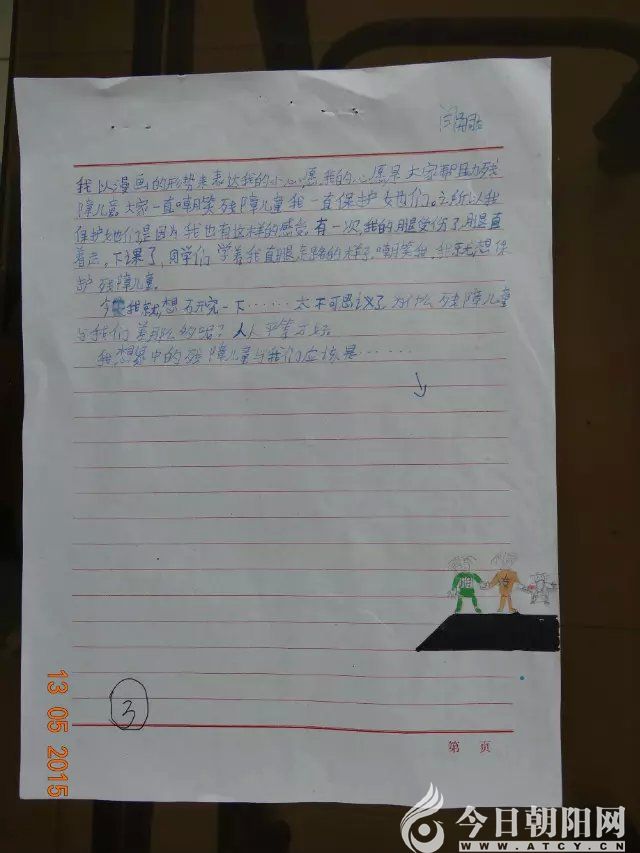 我以漫画的形势来表达我的小心愿,我的心愿是大家帮助残
障儿童。大家一直嘲笑残障儿童我一直保护她们。之所以我
保护她们是因为我也有这样的感觉。有一次,我的腿受伤了,腿直
着走,下课了,同学们学着我直腿走路的样子,嘲笑我,我就想保
护残障儿童。
我就想研究一下……太不可思议了,为什么残障儿童
与我们差那么多呢?人人平等才对
我想象中的残障儿童与我们应该是……
3
第 页
13 05 2015
今日朝阳网
WWW.ATCY.CN